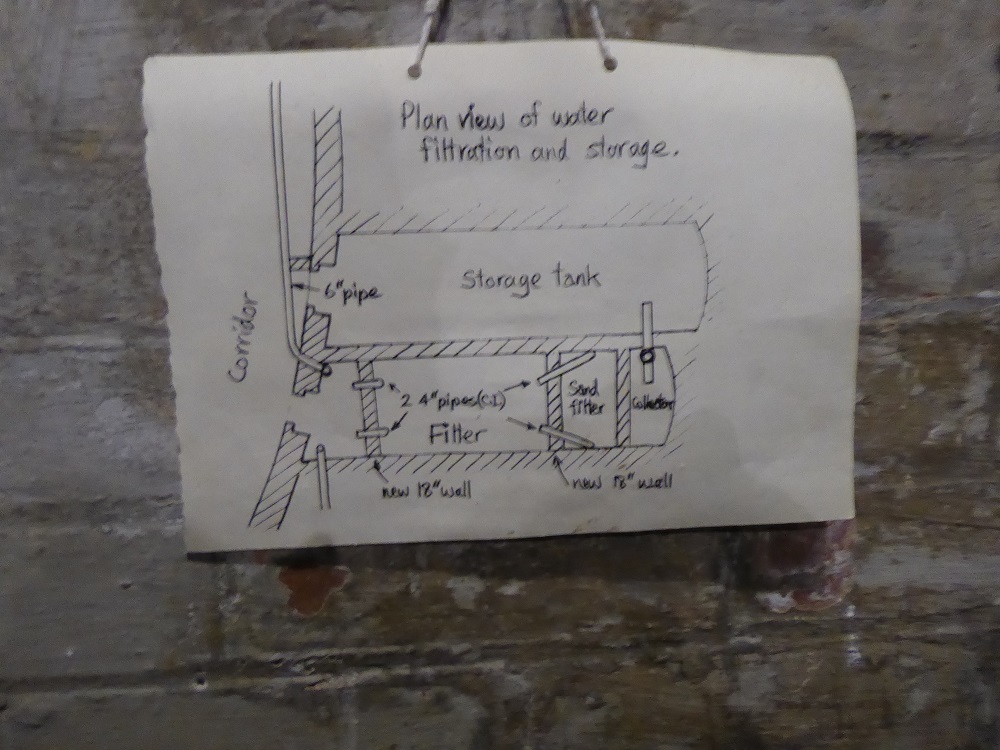 Plan view of water
filtration and storage.
Storage tank
6" pipe
Corridor
2 4" pipes (C.I)
Sand
filter
Collector
Filter
new 18" wall
new 18" wall